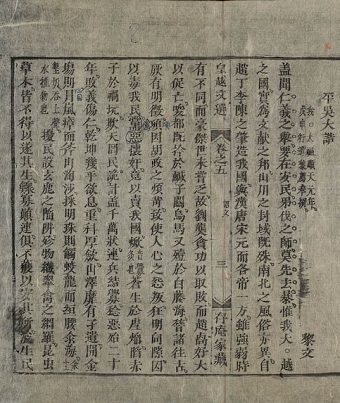 平吳大誥
黎文
蓋聞仁義之舉要在安民吊伐之師莫先去暴惟我大越
之國實為文献之邦山川之封域既殊南北之風俗亦異自
趙丁李陳之肇造我國與漢唐宋元而各帝一方雖強弱時
皇越文選 卷之五 誥文 三 存庵家藏
有不同而豪傑世未嘗之故劉龔貪功以取敗而趙卨好大
以促亡唆都既擒於鹹子關烏馬又殪於白藤海嵇諸往古
厥有明徵頃因胡政之煩苛致使人心之怨叛狂明伺隙因
以毒我民惡黨懷奸竟以賣我國焮蒼生於虐焰陷赤
子於禍坑欺天罔民詭計盖千萬狀連兵結釁稔惡殆二十
年敗義傷仁乾坤幾乎欲息重科厚歛山澤靡有孑遺開金
場則冒嵐瘴而斧山淘沙採明珠則觸蛟龍而絙腰汆海
擾民設玄鹿之陷阱殄物織翠禽之網羅昆虫
草木皆不得以遂其生鰥寡顛連俱不獲以安其所浚生民